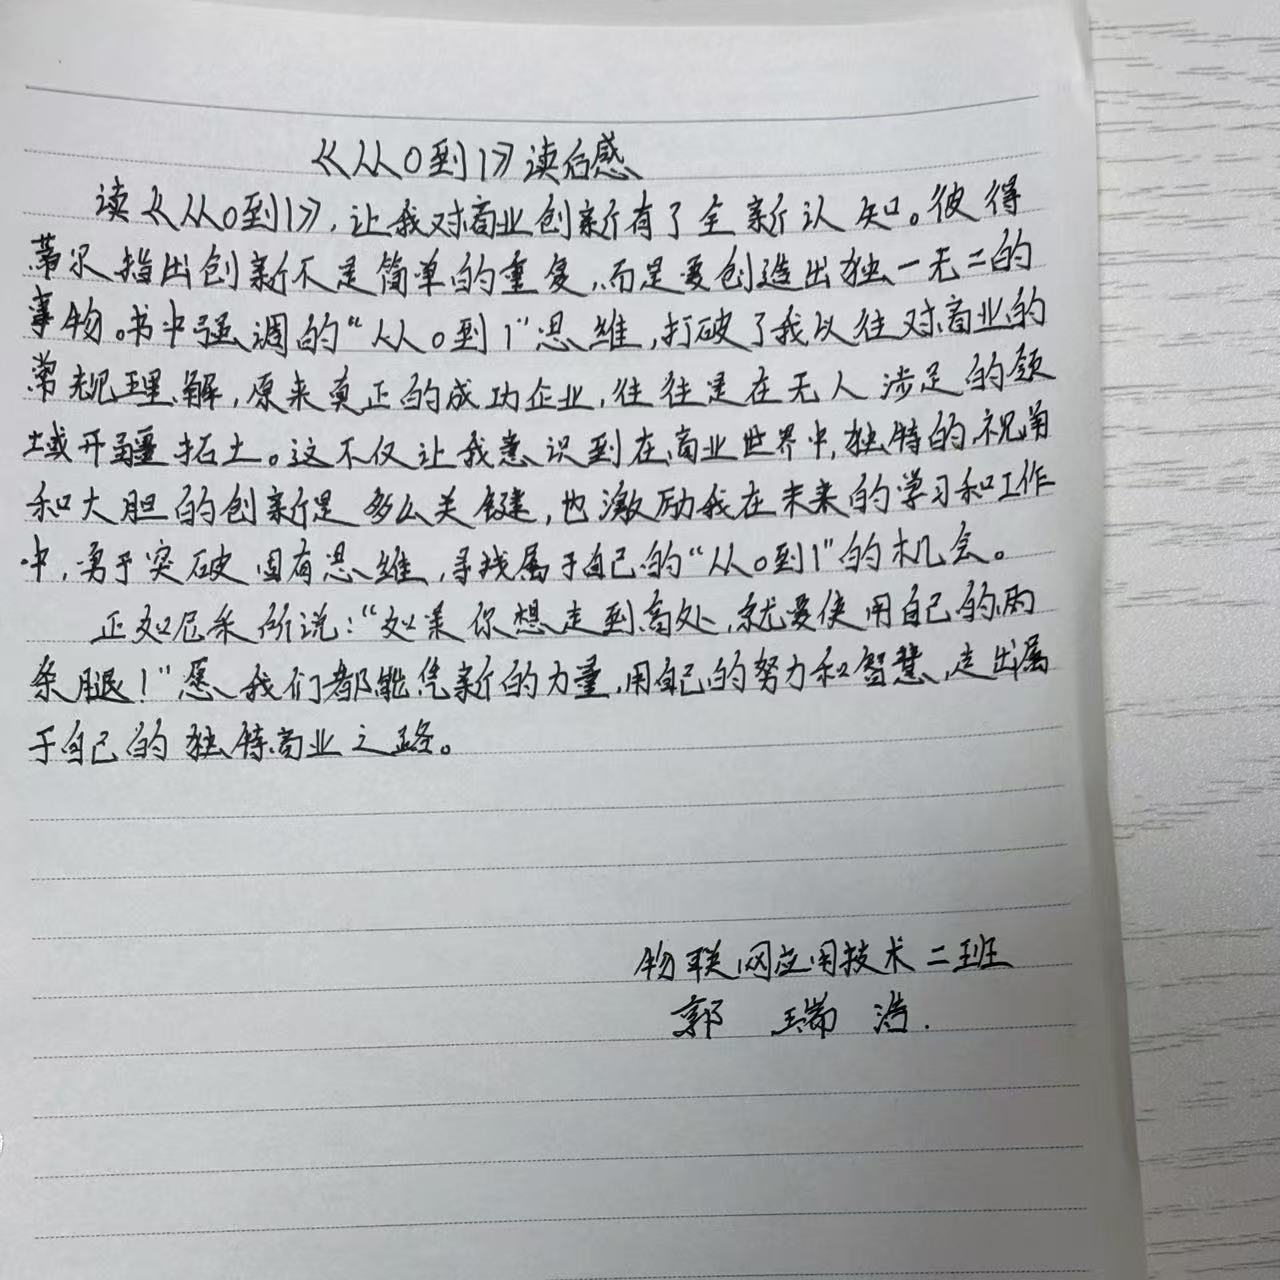 《从0到1》读后感
读《从0到1》，让我对商业创新有了全新认知。彼得
蒂尔指出创新不是简单的重复，而是要创造出独一无二的
事物。书中强调的“从0到1”思维，打破了我以往对商业的
常规理解，原来真正的成功企业，往往是在无人涉足的领
域开疆拓土。这不仅让我意识到在商业世界中，独特的视角
和大胆的创新是多么关键，也激励我在未来的学习和工作
中，勇于突破固有思维，寻找属于自己的“从0到1”的机会。
正如尼采所说：“如果你想走到高处，就要使用自己的两
条腿！”愿我们都能凭新的力量，用自己的努力和智慧，走出属
于自己的独特商业之路。
物联网应用技术二班
郭 瑞浩.